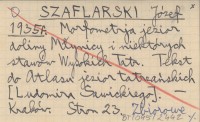 SZAFLARSKI Józef
1935. Morfometrja jezior
doliny Młynicy i niektórych
stawów Wysokich Tatr. Tekst
do Atlasu jezior tatrzańskich
[Ludomira Sawickiego]. —
Kraków. Stron 23. Zbiorowe